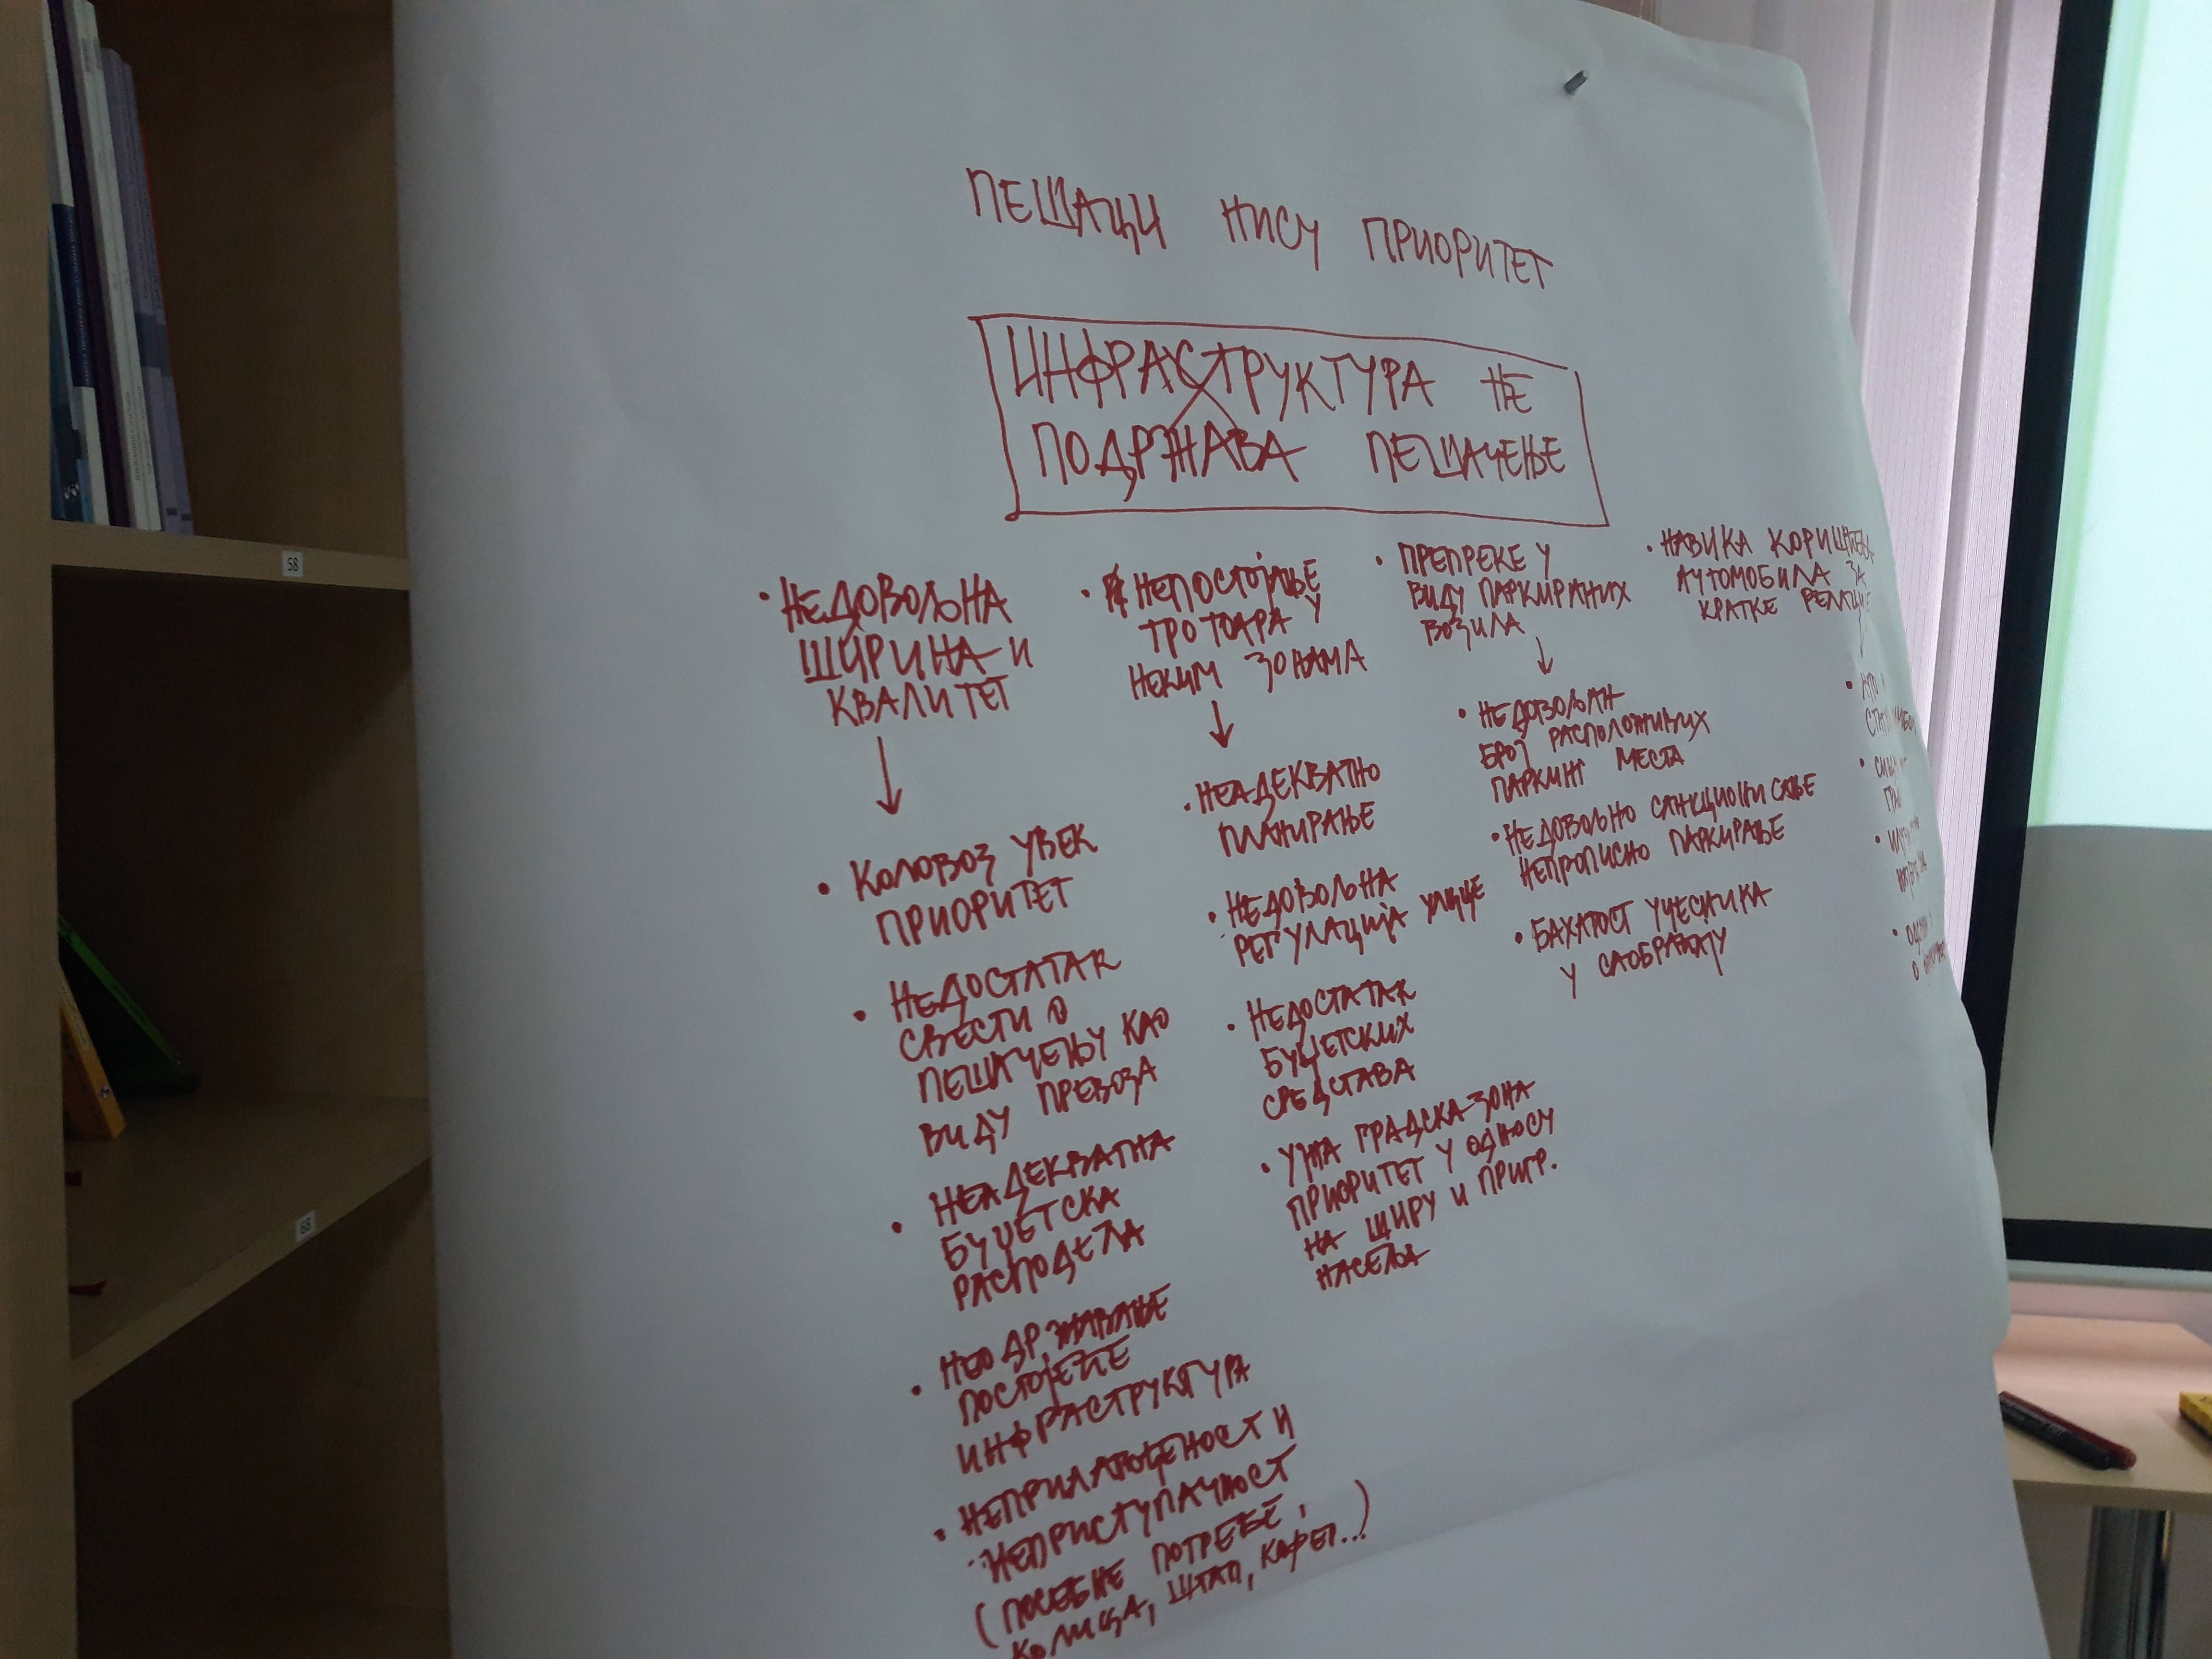 ПЕШАЦИ НИСУ ПРИОРИТЕТ
ИНФРАСТРУКТУРА НЕ
ПОДРЖАВА ПЕШАЧЕЊЕ
• НЕДОВОЉНА
ШИРИНА И
КВАЛИТЕТ
• КОЛОВОЗ УВЕК
ПРИОРИТЕТ
• НЕДОСТАТАК
СВЕСТИ О
ПЕШАЧЕЊУ КАО
ВИДУ ПРЕВОЗА
• НЕАДЕКВАТНА
БУЏЕТСКА
РАСПОДЕЛА
• НЕОДРЖАВАЊЕ
ПОСТОЈЕЋЕ
ИНФРАСТРУКТУРА
• НЕПРИЛАГОЂЕНОСТ И
НЕПРИСТУПАЧНОСТ
(ПОСЕБНЕ ПОТРЕБЕ,
КОЛИЦА, ШТАП, КОФЕР...)
• НЕПОСТОЈАЊЕ
ТРОТОАРА У
НЕКИМ ЗОНАМА
• НЕАДЕКВАТНО
ПЛАНИРАЊЕ
• НЕДОВОЉНА
РЕГУЛАЦИЈА УЛИЦЕ
• НЕДОСТАТАК
БУЏЕТСКИХ
СРЕДСТАВА
• УЖА ГРАДСКА ЗОНА
ПРИОРИТЕТ У ОДНОСУ
НА ШИРУ И ПРИГР.
НАСЕЉА
• ПРЕПРЕКЕ У
ВИДУ ПАРКИРАНИХ
ВОЗИЛА
• НЕДОВОЉАН
БРОЈ РАСПОЛОЖИВИХ
ПАРКИНГ МЕСТА
• НЕДОВОЉНО САНКЦИОНИСАЊЕ
НЕПРОПИСНО ПАРКИРАЊЕ
• БАХАТОСТ УЧЕСНИКА
У САОБРАЋАЈУ
• НАВИКА КОРИШЋЕЊА
АУТОМОБИЛА ЗА
КРАТКЕ РЕЛАЦИЈЕ
58
68